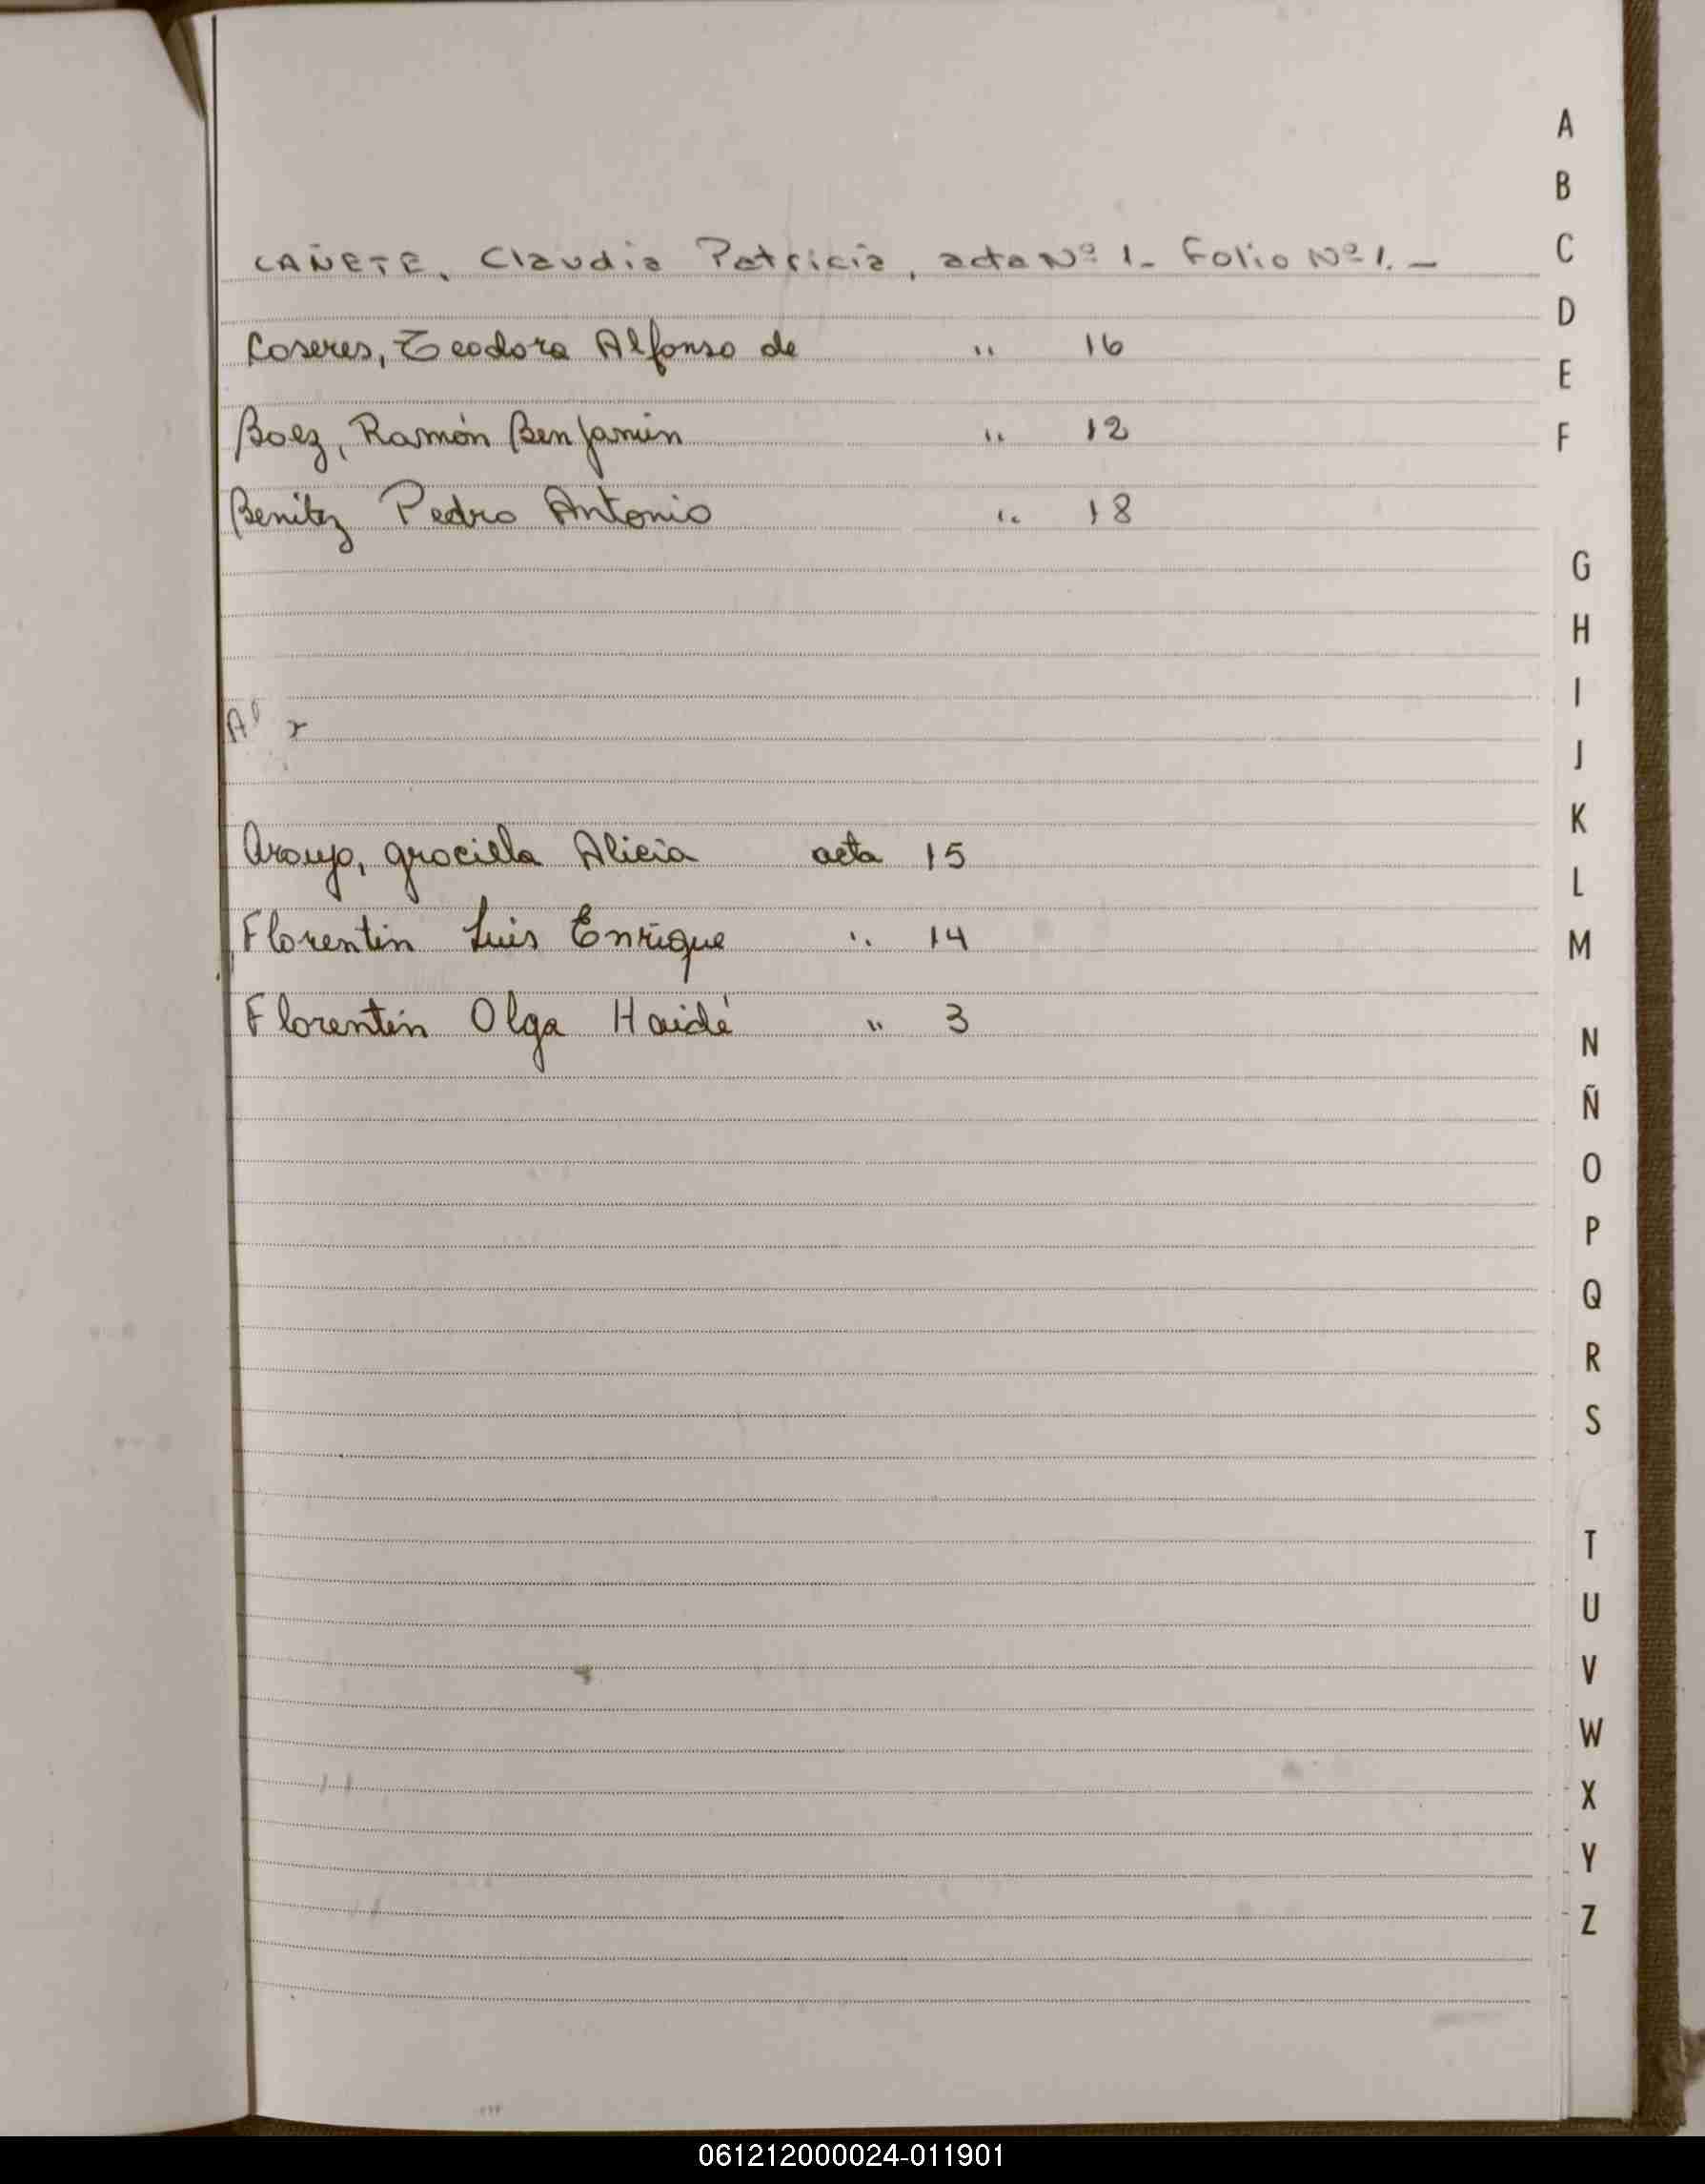 CAÑETE, Claudia Patricia, acta Nº 1_ Folio Nº 1. _
Coseres, Teodora Alfonso de " 16
Baez, Ramón Benjamin " 12
Benitez Pedro Antonio " 18
Araujo, graciela Alicia acta 15
Florentin Luis Enrique " 14
Florentin Olga Haidé " 3
A
B
C
D
E
F
G
H
I
J
K
L
M
N
Ñ
O
P
Q
R
S
T
U
V
W
X
Y
Z
061212000024-011901